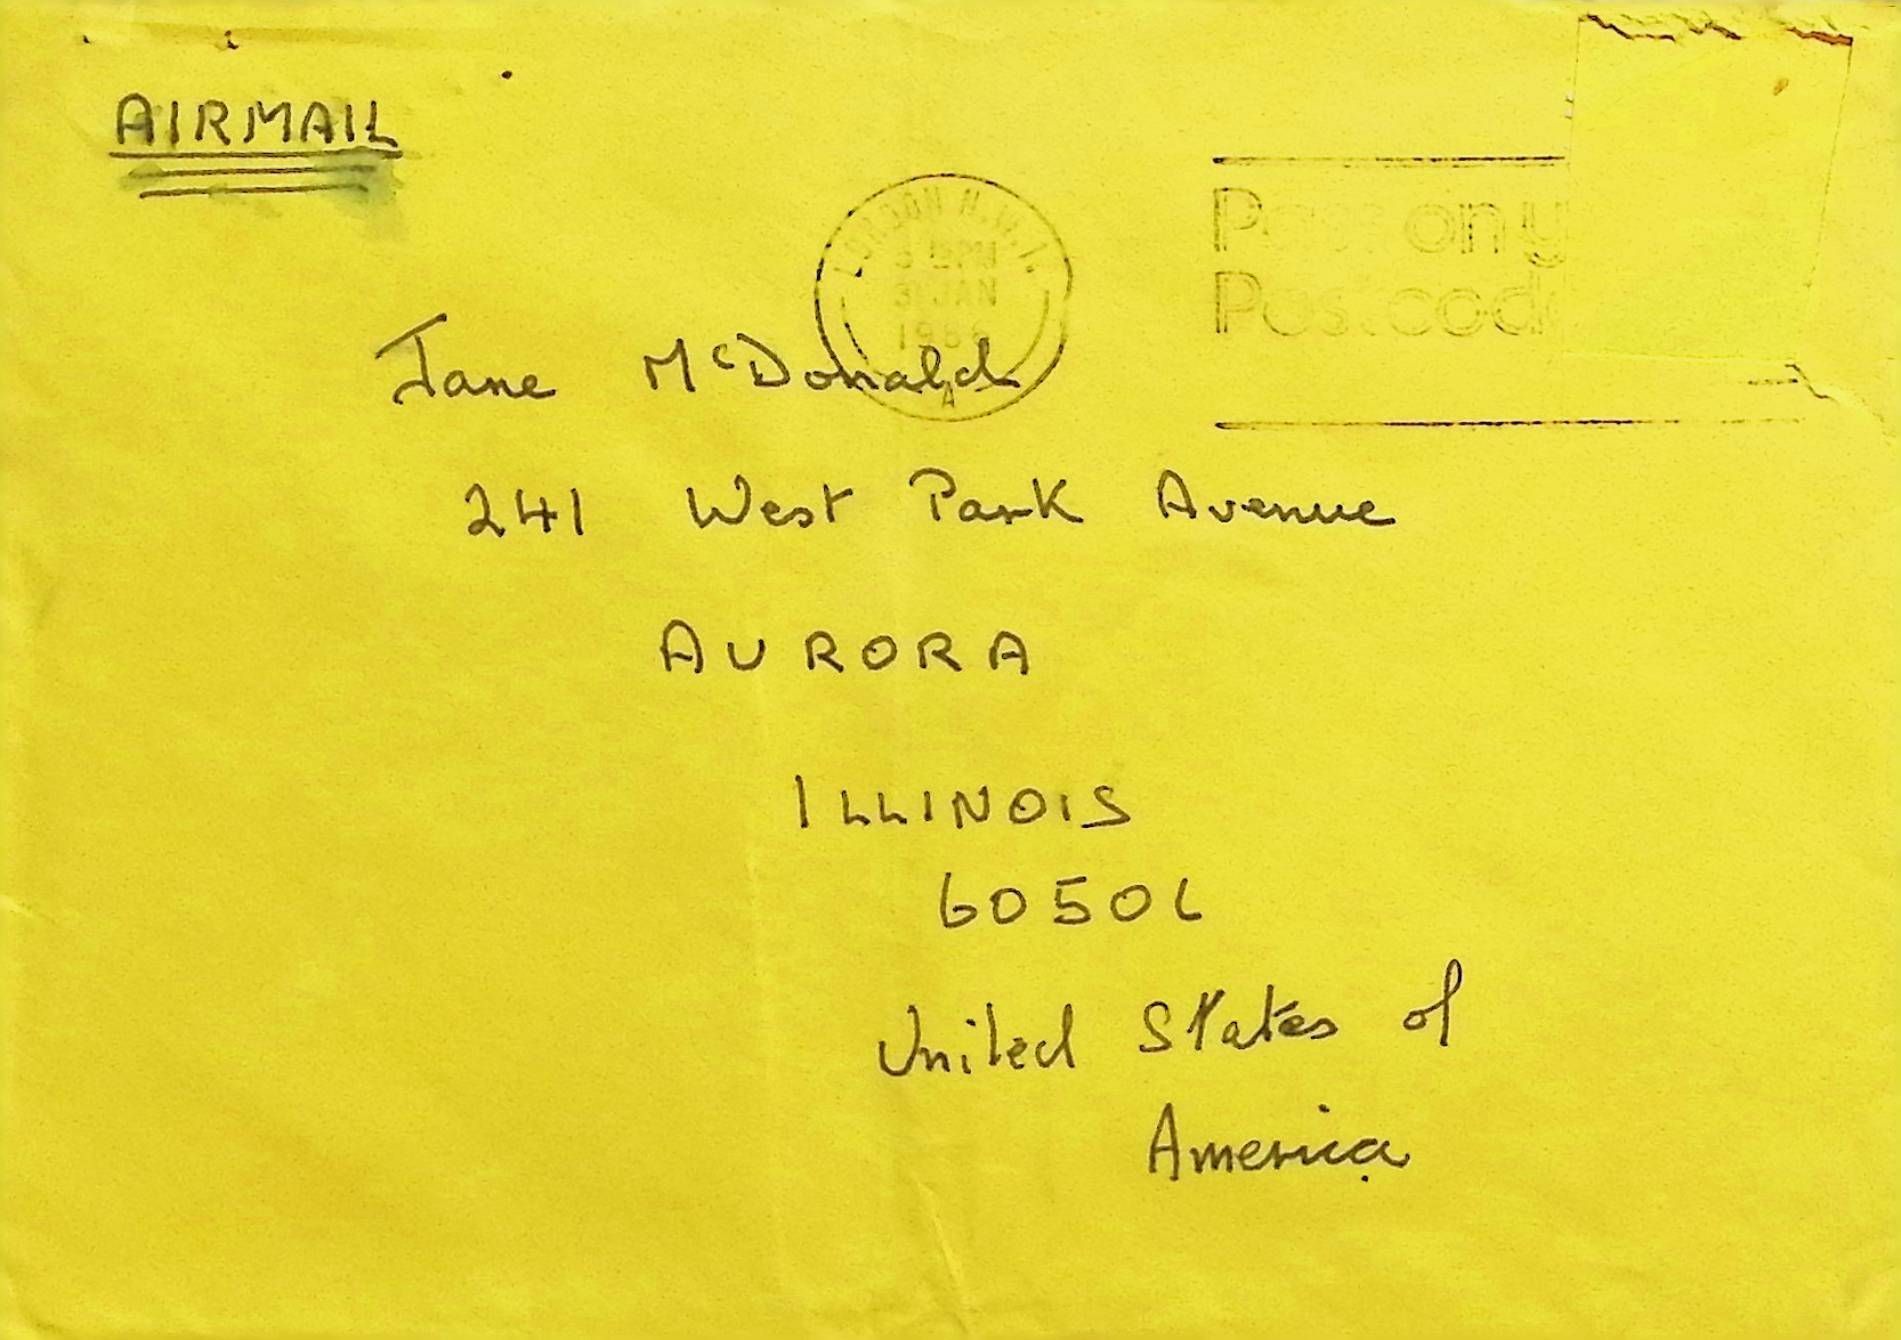 AIRMAIL
LONDON N.W.1.
PM
31 JAN
1986
A
Pass on y
Postcod
Jane McDonald
241 West Park Avenue
AURORA
ILLINOIS
60506
United States of
America